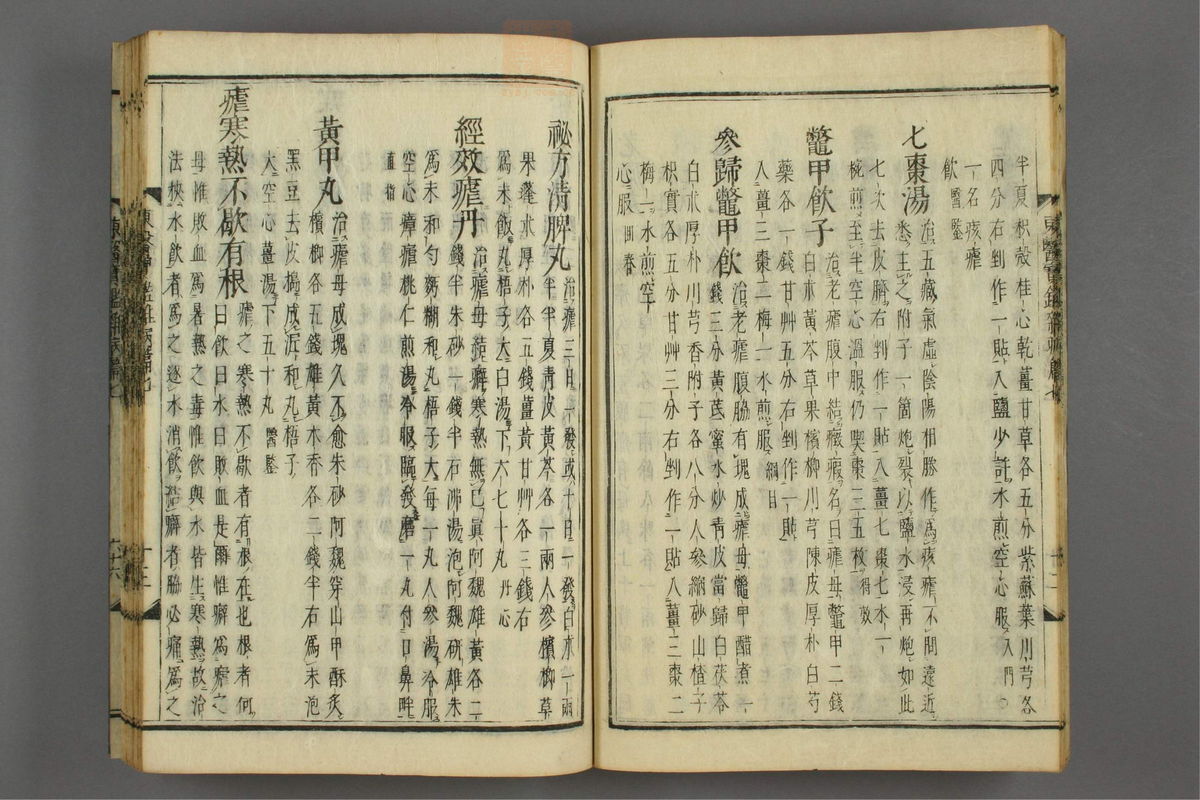 半夏枳殼桂心乾薑甘草各五分紫蘇葉川芎各
四分右剉作一貼入鹽少許水煎空心服入門○
一名痎瘧
飮醫鑒
七棗湯治五藏氣虛陰陽相勝作爲痎瘧不問遠近
悉主之附子一箇炮裂以鹽水浸再炮如此
七次去皮臍右剉作一貼入薑七棗七水一
椀煎至半空心溫服仍喫棗三五枚得效
鱉甲飮子治老瘧腹中結癥瘕名曰瘧母鱉甲二錢
白朮黃芩草果檳榔川芎陳皮厚朴白芍
藥各一錢甘艸五分右剉作一貼
入薑三棗二梅一水煎服綱目
參歸鱉甲飮治老瘧腹脇有塊成瘧母鱉甲醋煮一
錢三分黃芪蜜水炒靑皮當歸白茯苓
白朮厚朴川芎香附子各八分人參縮砂山楂子
枳實各五分甘艸三分右剉作一貼入薑三棗二
梅一水煎空
心服回春
祕方清脾丸治瘧三日一發或十日一發白朮一兩
半半夏靑皮黃芩各一兩人參檳榔草
果蓬朮厚朴各五錢薑黃甘艸各三錢右
爲末飯丸梧子大白湯下六七十丸丹心
經效瘧丹治瘧母結癖寒熱無已眞阿魏雄黃各二
錢半朱砂一錢半右沸湯泡阿魏硏雄朱
爲末和勻麪糊和丸梧子大每一丸人參湯冷服
空心瘴瘧桃仁煎湯冷服臨發磨一丸付口鼻畔
直指
黃甲丸治瘧母成塊久不愈朱砂阿魏穿山甲酥炙
檳榔各五錢雄黃木香各二錢半右爲末泡
黑豆去皮搗成泥和丸梧子
大空心薑湯下五十丸醫鑒
瘧寒熱不歇有根瘧之寒熱不歇者有根在也根者何
曰飮曰水曰敗血是爾惟癖爲瘧之
母惟敗血爲暑熱之毒惟飮與水皆生寒熱故治
法挾水飮者爲之逐水消飮結癖者脇必痛爲之